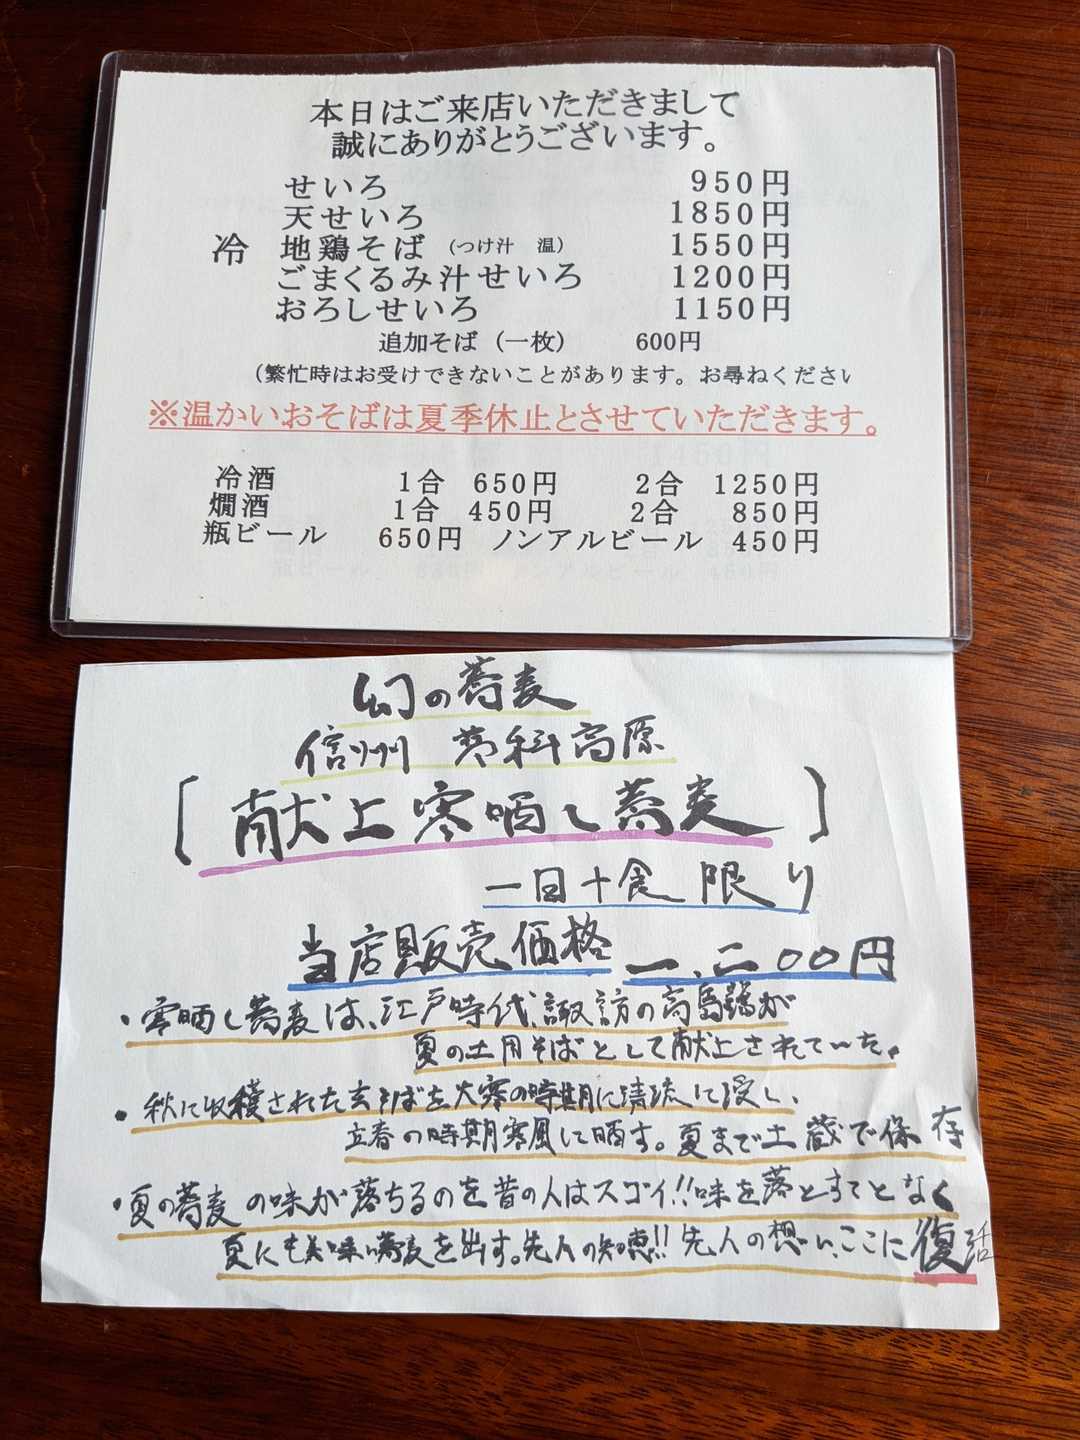 本日はご来店いただきまして
誠にありがとうございます。
せいろ 950円
天せいろ 1850円
冷 地鶏そば (つけ汁 温) 1550円
ごまくるみ汁せいろ 1200円
おろしせいろ 1150円
追加そば (一枚) 600円
(繁忙時はお受けできないことがあります。お尋ねください
※温かいおそばは夏季休止とさせていただきます。
冷酒 1合 650円 2合 1250円
燗酒 1合 450円 2合 850円
瓶ビール 650円 ノンアルビール 450円
幻の蕎麦
信州 蓼科高原
[献上寒晒し蕎麦]
一日十食限り
当店販売価格 一、二〇〇円
・寒晒し蕎麦は、江戸時代、諏訪の高島藩が
夏の土用そばとして献上されていた。
・秋に収穫された玄そばを大寒の時期に清流に浸し、
立春の時期寒風に晒す。夏まで土蔵で保存
・夏の蕎麦の味が落ちるのを昔の人はスゴイ!!味を落とすことなく
夏にも美味い蕎麦を出す。先人の知恵!!先人の想い、ここに復活